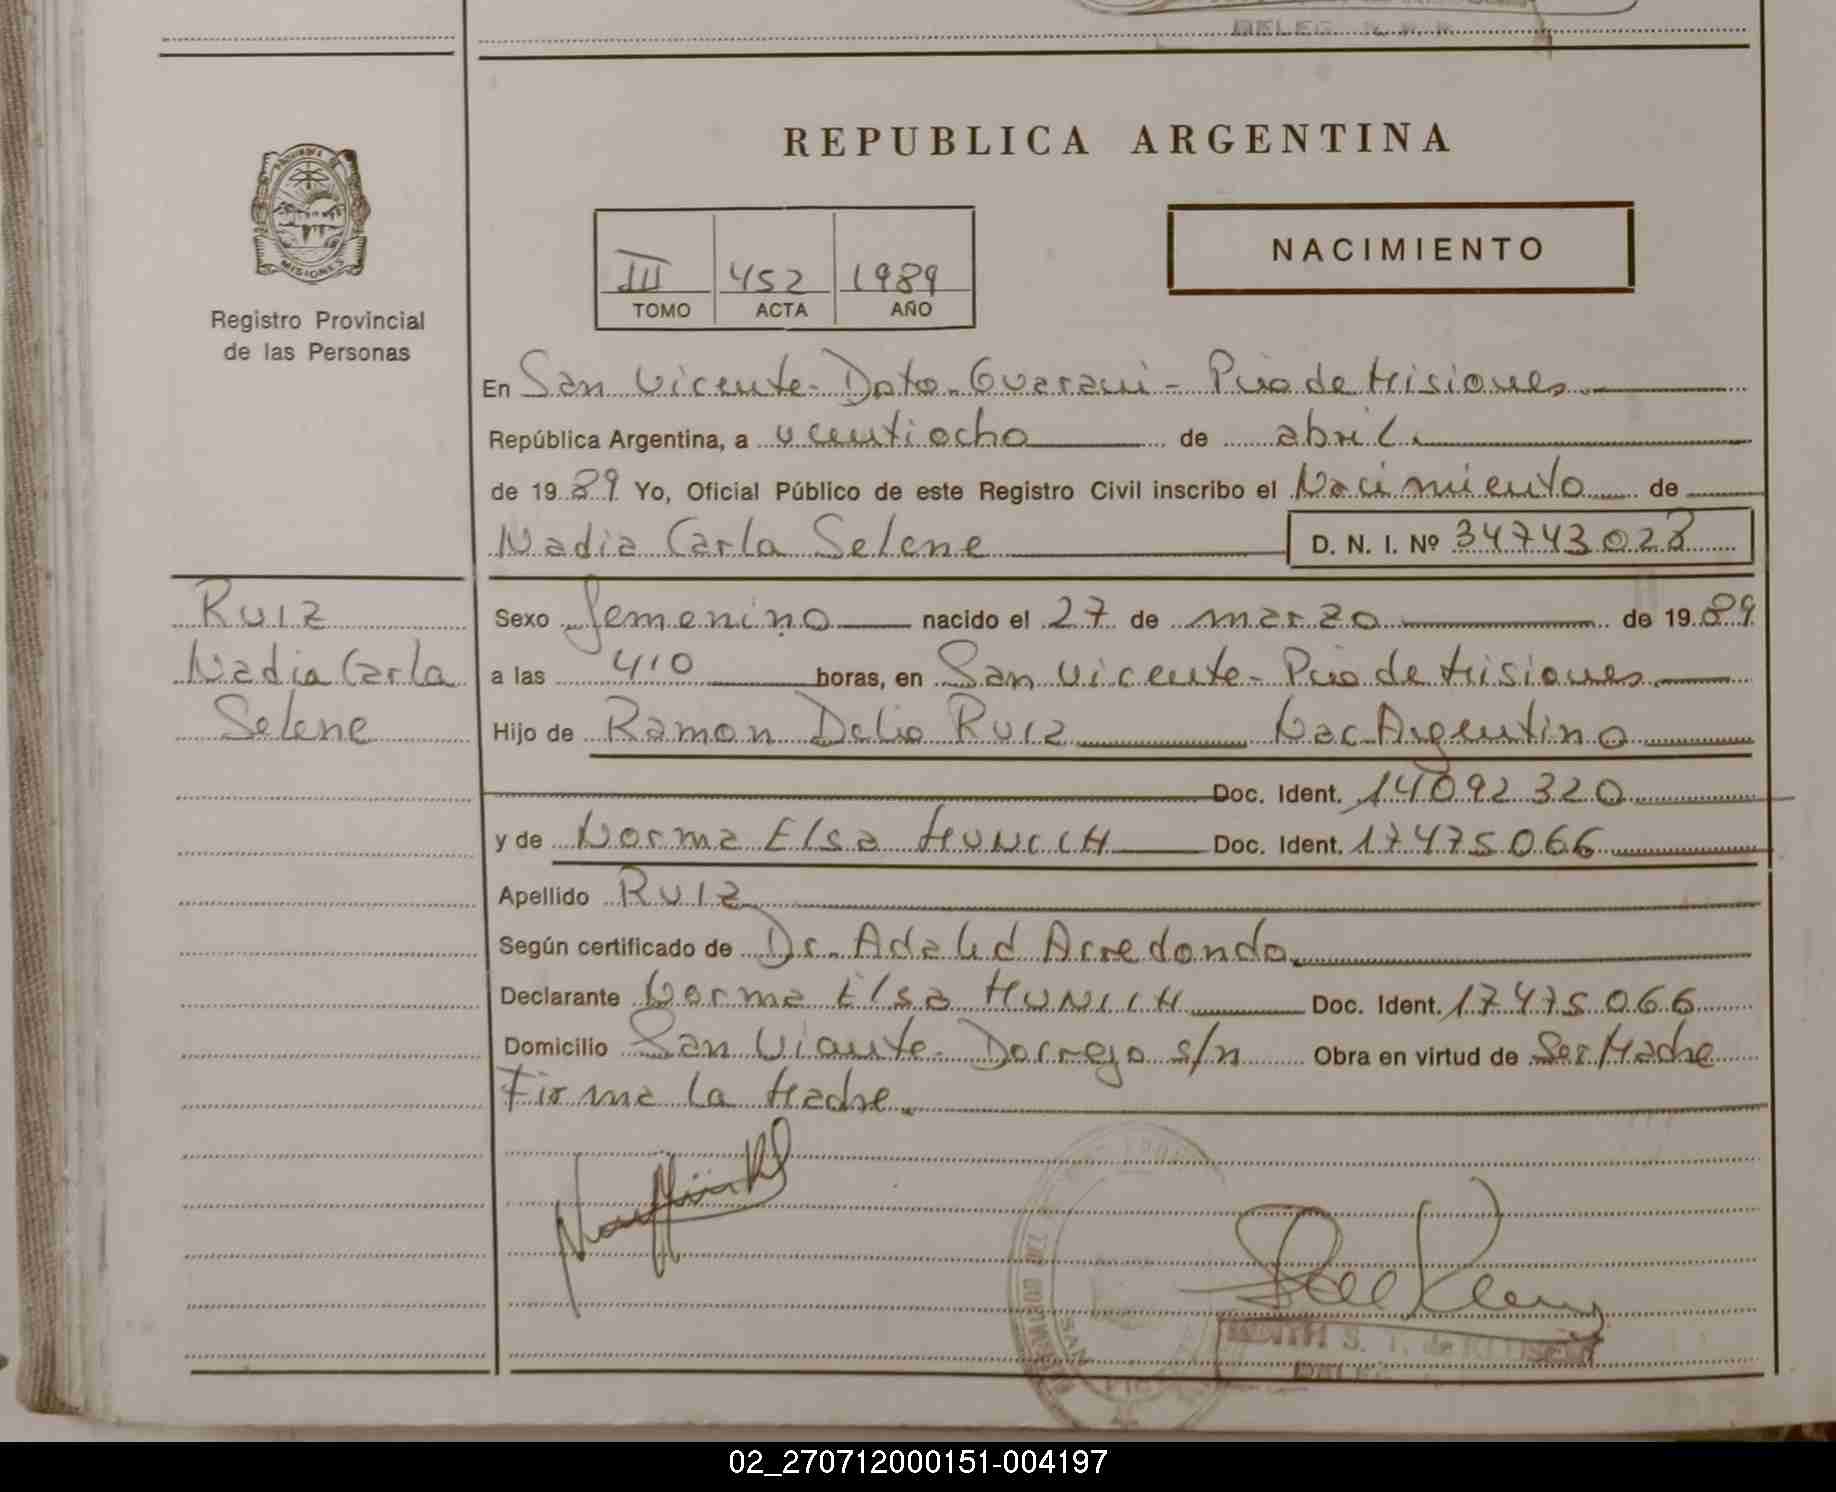 REPUBLICA ARGENTINA
NACIMIENTO
III 452 1989
TOMO ACTA AÑO
MISIONES
Registro Provincial
de las Personas
En San Vicente - Dpto. Guarani - Pcia de Misiones
República Argentina, a veintiocho de abril
de 1989 Yo, Oficial Público de este Registro Civil inscribo el Nacimiento de
Nadia Carla Selene D. N. I. Nº 34743028
Ruiz
Nadia Carla
Selene
Sexo femenino nacido el 27 de marzo de 1989
a las 410 horas, en San Vicente - Pcia de Misiones
Hijo de Ramon Delio Ruiz Nac Argentino
Doc. Ident. 14092320
y de Norma Elsa HUNICH Doc. Ident. 17475066
Apellido Ruiz
Según certificado de Dr. Arredondo
Declarante Norma Elsa HUNICH Doc. Ident. 17475066
Domicilio San Vicente - Dorrego s/n Obra en virtud de Ser Madre
Firma la Madre.
02_270712000151-004197